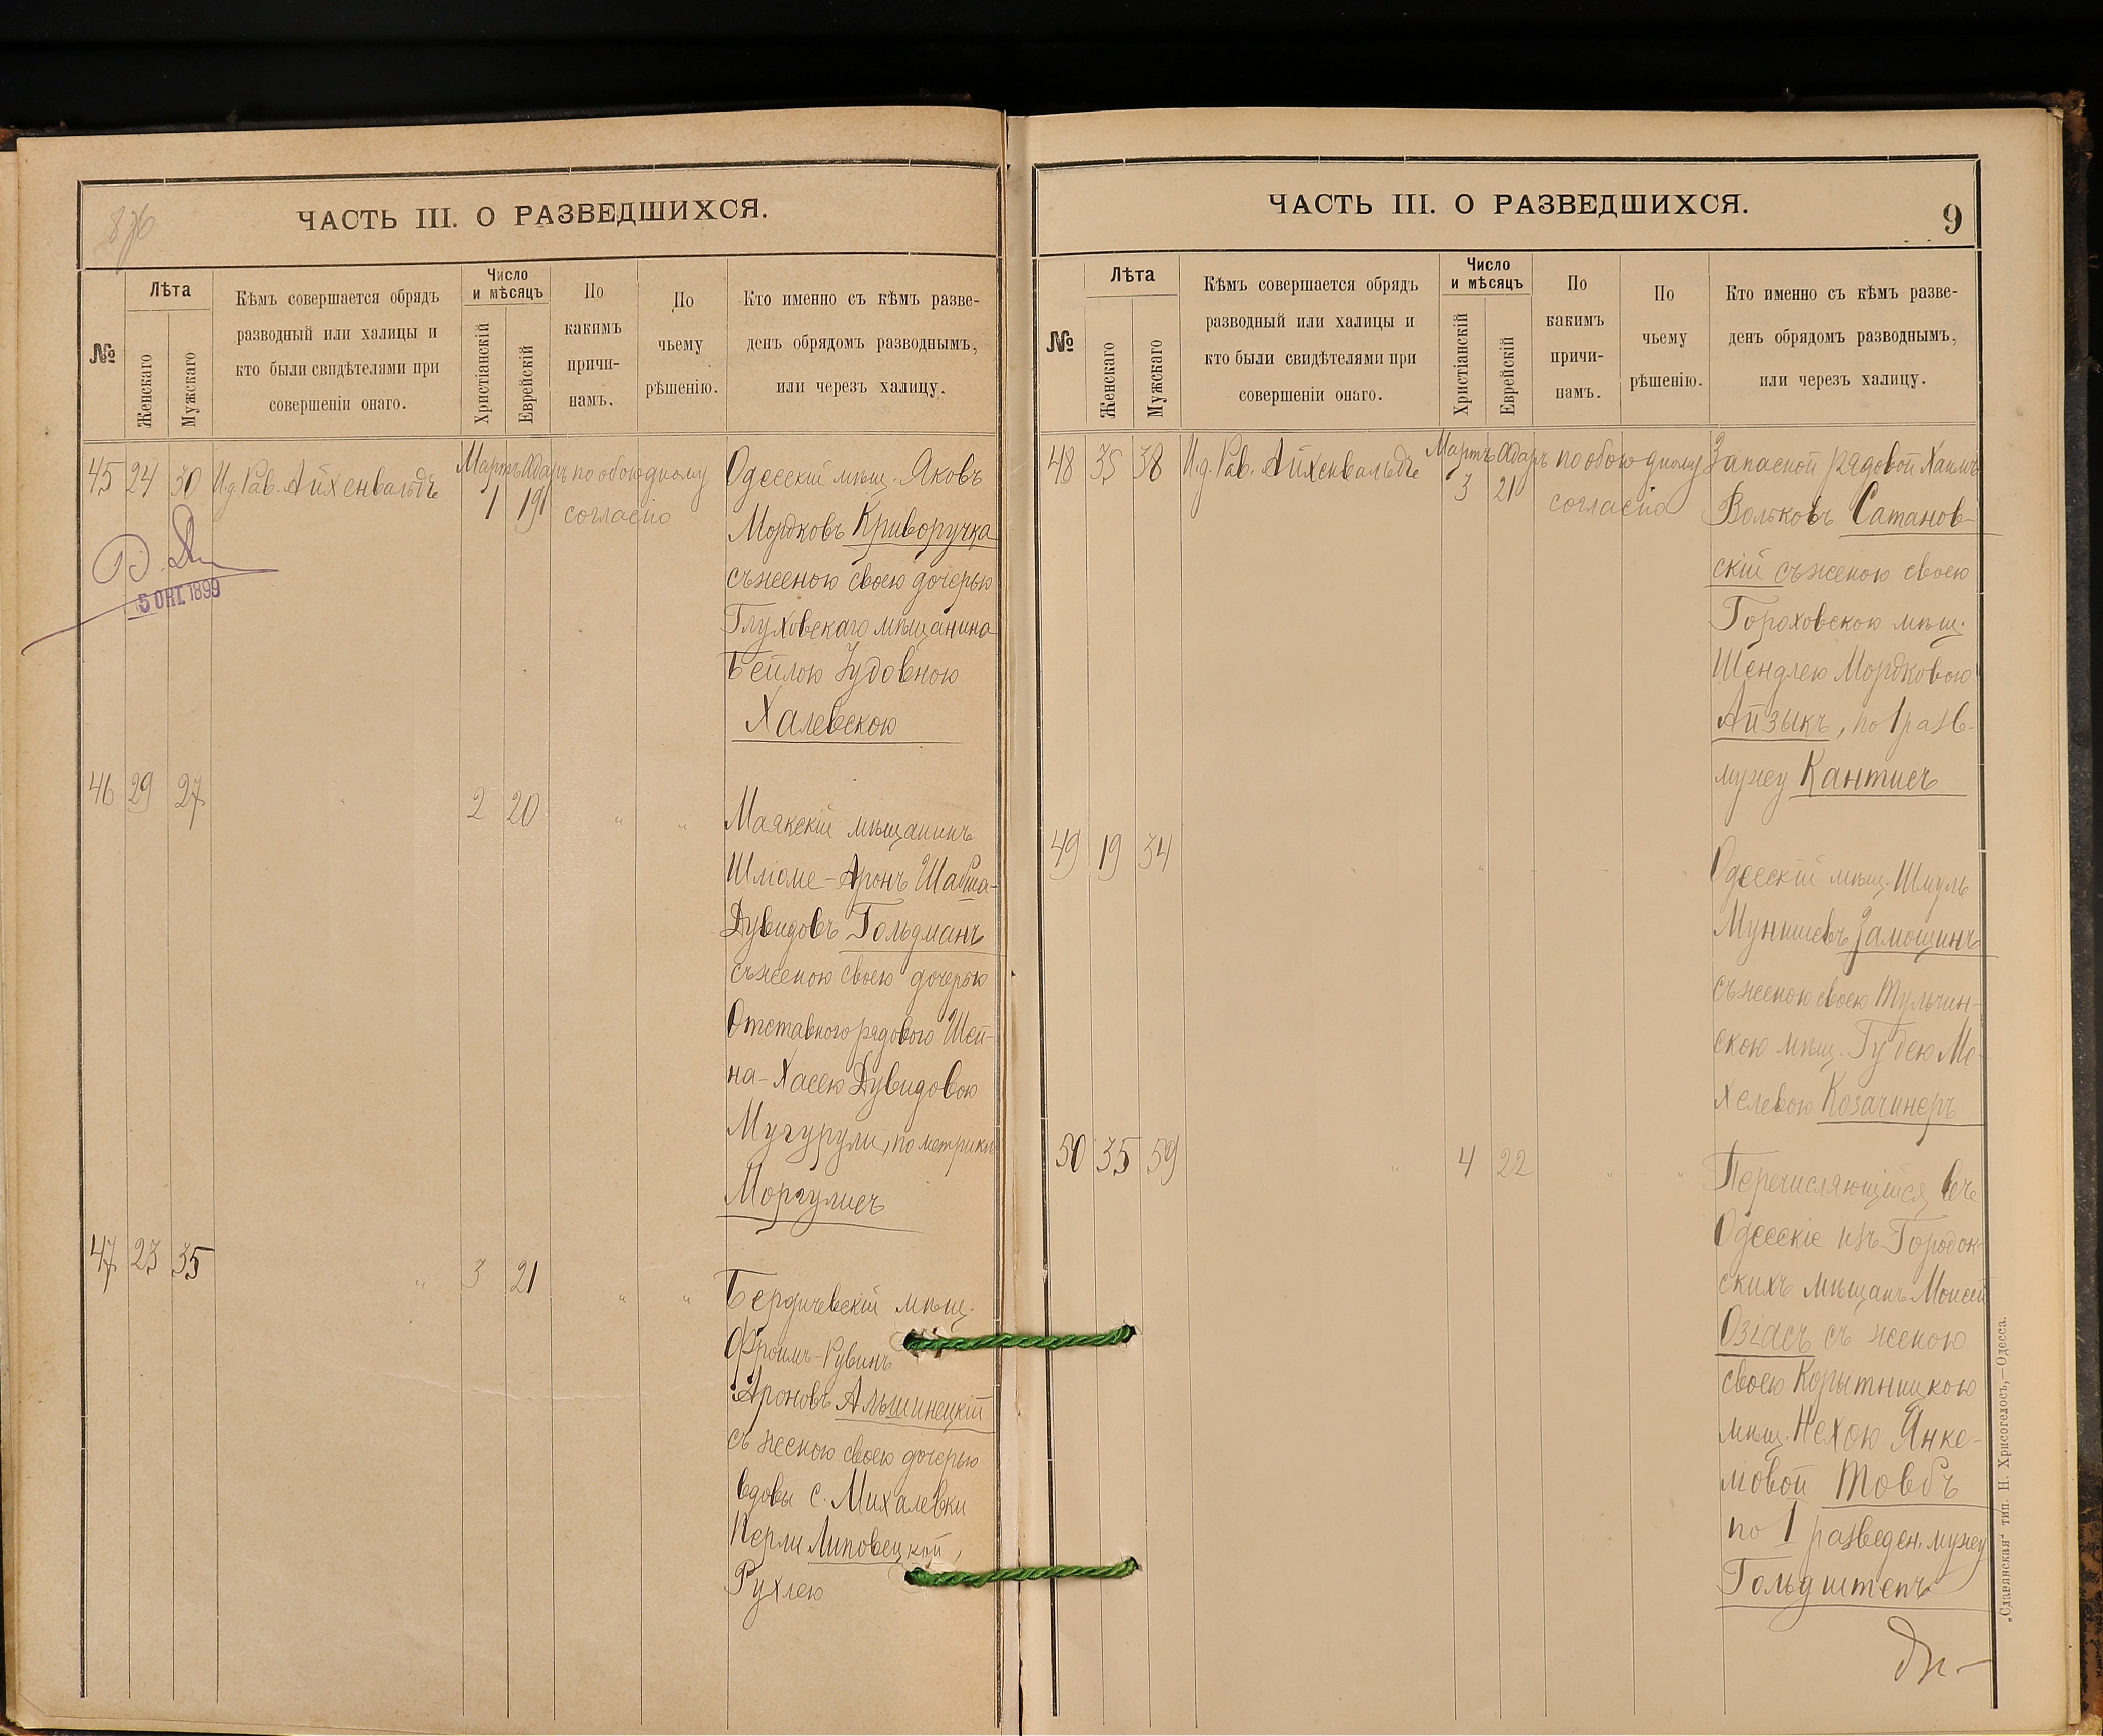 ЧАСТЬ III. О РАЗВЕДШИХСЯ.
№
Лѣта
Женскаго
Мужскаго
Кѣмъ совершается обрядъ
разводный или халицы и
кто были свидѣтелями при
совершеніи онаго.
Число
и мѣсяцъ
Христіанскій
Еврейскій
По
какимъ
причи-
намъ.
По
чьему
рѣшенію.
Кто именно съ кѣмъ разве-
денъ обрядомъ разводнымъ,
или черезъ халицу.
45 24 30 И.д. Рав. Айхенвальдъ Мартъ Адаръ по обоюдному
1 19 согласію
5 ОКТ. 1899
Одесскій мѣщ. Яковъ
Мордковъ Криворучка
съ женою своею дочерью
Глуховскаго мѣщанина
Бейлою Іудовною
Халевскою
46 29 27 " 2 20 " "
Маякскій мѣщанинъ
Шліоме-Аронъ Шабса-
Дувидовъ Гольдманъ
съ женою своею дочерью
Отставного рядового Шей-
на-Хасею Дувидовою
Мугурули, по метрикѣ
Моргулисъ
47 23 35 " 3 21 " "
Бердичевскій мѣщ.
Фроимъ-Рувинъ
Ароновъ Альшинецкій
съ женою своею дочерью
вдовы с. Михалевки
Перли Липовецкой,
Рухлею
ЧАСТЬ III. О РАЗВЕДШИХСЯ.
9
№
Лѣта
Женскаго
Мужскаго
Кѣмъ совершается обрядъ
разводный или халицы и
кто были свидѣтелями при
совершеніи онаго.
Число
и мѣсяцъ
Христіанскій
Еврейскій
По
какимъ
причи-
намъ.
По
чьему
рѣшенію.
Кто именно съ кѣмъ разве-
денъ обрядомъ разводнымъ,
или черезъ халицу.
48 35 38 И.д. Рав. Айхенвальдъ Мартъ Адаръ по обоюдному
3 21 согласію
Запасной рядовой Хаимъ
Вольковъ Сатанов-
скій съ женою своею
Гороховскою мѣщ.
Шендлею Мордковою
Айзыкъ, по 1 разв.
мужу Кантисъ
49 19 34 " " " "
Одесскій мѣщ. Шмуль
Мунишевъ Замощинъ
съ женою своею Тульчин-
скою мѣщ. Гудею Ме-
хелевою Козачинеръ
50 35 59 " 4 22 " "
Перечисляющійся въ
Одесскіе изъ Городок-
скихъ мѣщанъ Моисей
Озіасъ съ женою
своею Корытницкою
мѣщ. Нехою Янке-
лювой Товбъ
по 1 разведен. мужу
Гольдштепъ
„Славянская" тип. Н. Хрисогелосъ,—Одесса.